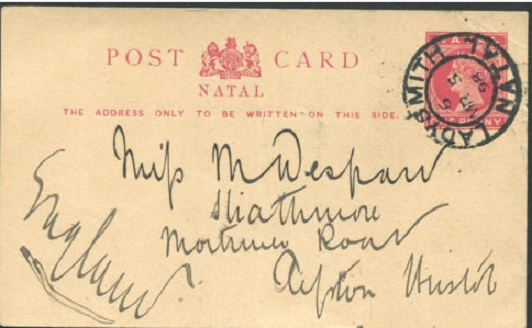 POST CARD
NATAL
THE ADDRESS ONLY TO BE WRITTEN ON THIS SIDE.
LADYSMITH NATAL
98
Miss M
Strathmore
Mortimer Road
England